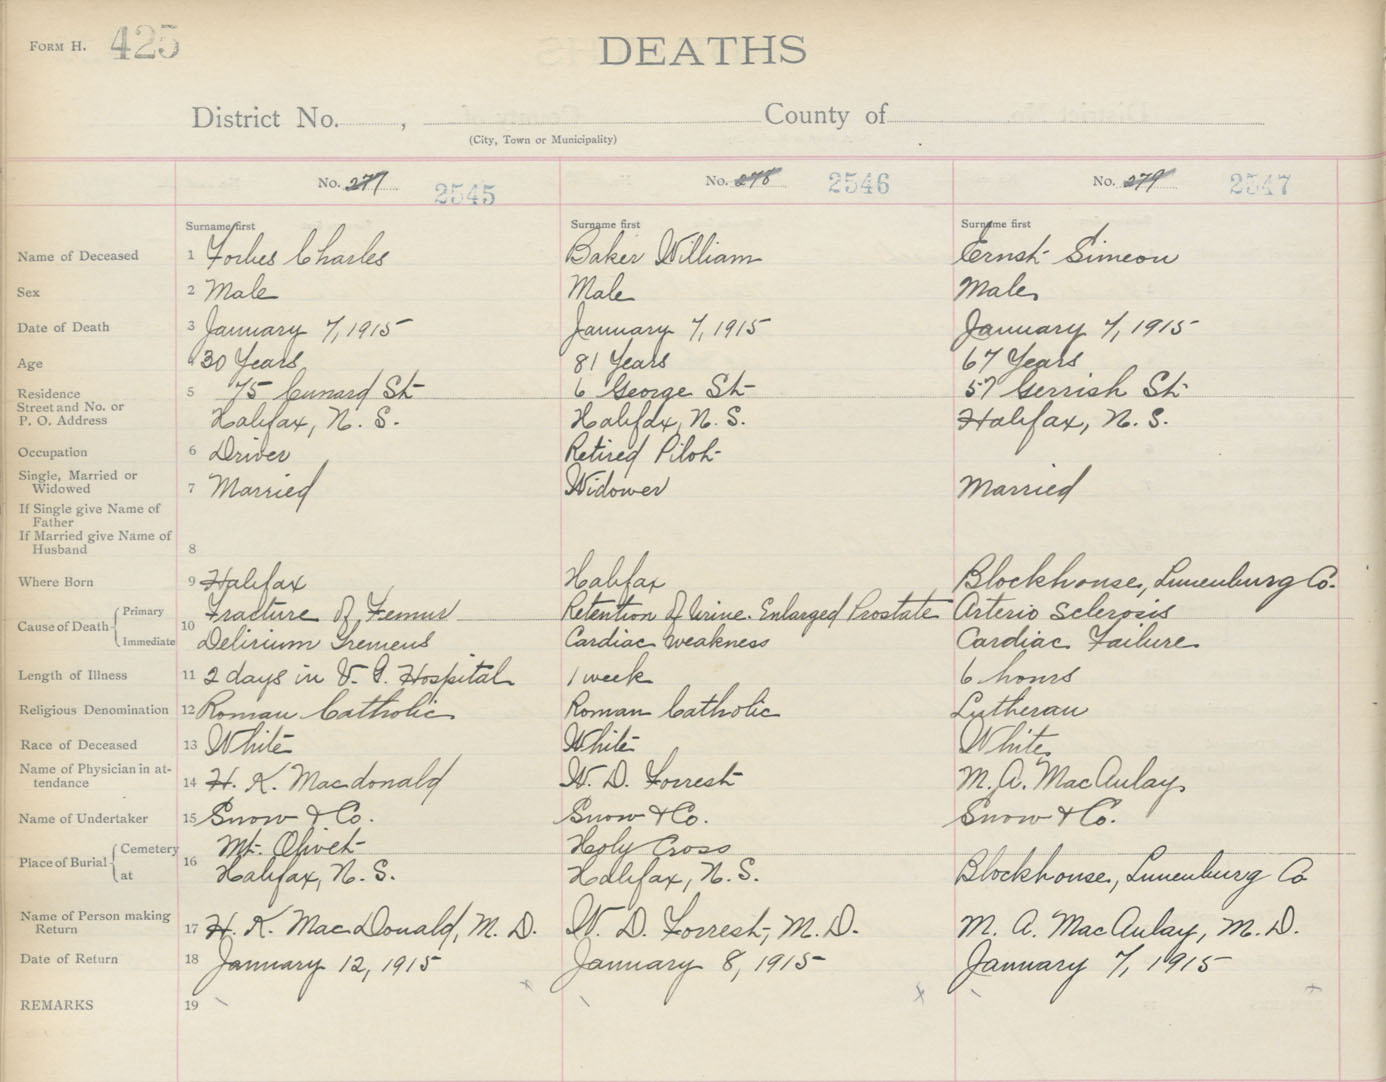 FORM H. 425
DEATHS
District No. , County of
(City, Town or Municipality)
No. 277 2545 No. 278 2546 No. 279 2547
Surname first Surname first Surname first
Name of Deceased 1 Forbes Charles Baker William Ernst Simeon
Sex 2 Male Male Male
Date of Death 3 January 7, 1915 January 7, 1915 January 7, 1915
Age 4 30 Years 81 Years 67 Years
Residence 5 75 Cunard St 6 George St 57 Gerrish St
Street and No. or
P. O. Address Halifax, N. S. Halifax, N. S. Halifax, N. S.
Occupation 6 Driver Retired Pilot
Single, Married or
Widowed 7 Married Widower Married
If Single give Name of
Father
If Married give Name of
Husband 8
Where Born 9 Halifax Halifax Blockhouse, Lunenburg Co.
Cause of Death Primary 10 Fracture of Femur Retention of Urine. Enlarged Prostate Arterio Sclerosis
Immediate Delirium Tremens Cardiac Weakness Cardiac Failure
Length of Illness 11 2 days in V. G. Hospital 1 week 6 hours
Religious Denomination 12 Roman Catholic Roman Catholic Lutheran
Race of Deceased 13 White White White
Name of Physician in at-
tendance 14 H. K. Macdonald W. D. Forrest M. A. MacAulay
Name of Undertaker 15 Snow & Co. Snow & Co. Snow & Co.
Place of Burial Cemetery 16 Mt. Olivet Holy Cross
at Halifax, N. S. Halifax, N. S. Blockhouse, Lunenburg Co
Name of Person making
Return 17 H. K. MacDonald, M. D. W. D. Forrest, M. D. M. A. MacAulay, M. D.
Date of Return 18 January 12, 1915 January 8, 1915 January 7, 1915
REMARKS 19